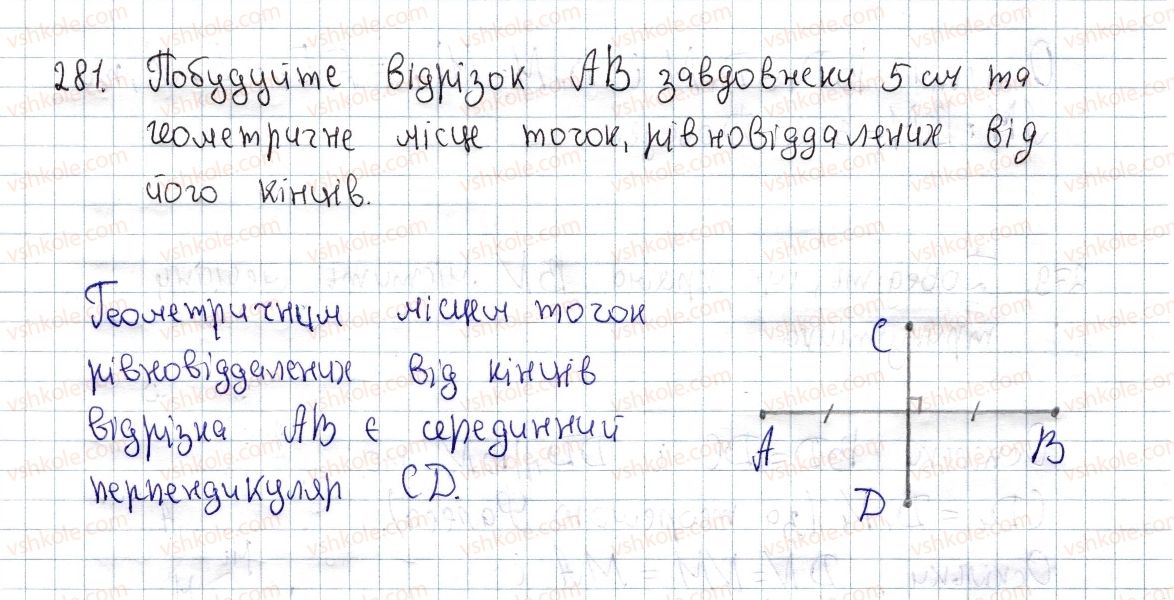 281. Побудуйте відрізок AB завдовжки 5 см та
геометричне місце точок, рівновіддалених від
його кінців.
Геометричним місцем точок
рівновіддалених від кінців
відрізка AB є серединний
перпендикуляр CD.
C
A
B
D
vshkole.com